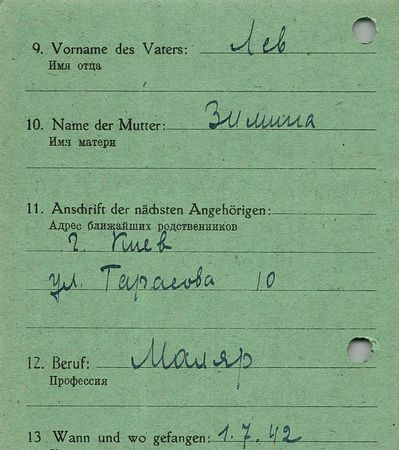 9. Vorname des Vaters: Лев
Имя отца
10. Name der Mutter: Зимина
Имя матери
11. Anschrift der nächsten Angehörigen:
Адрес ближайших родственников
г. Киев
ул. Тарасова 10
12. Beruf: Маляр
Профессия
13 Wann und wo gefangen: 1.7.42